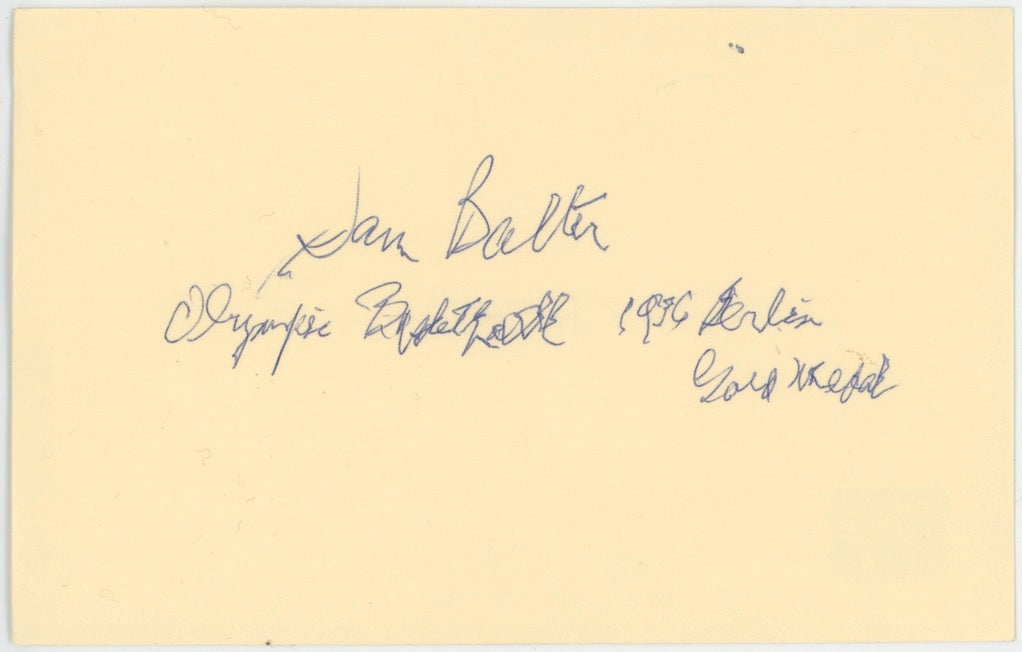 Sam Balter
Olympic Basketball 1936 Berlin
Gold Medal